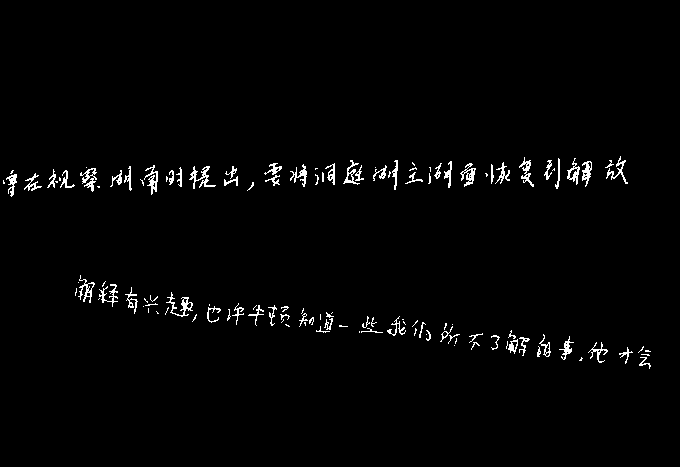 曾在视察湖南时提出,要将洞庭湖主湖面恢复到解放
解释有兴趣,也许牛顿知道一些我们所不了解的事,他才会